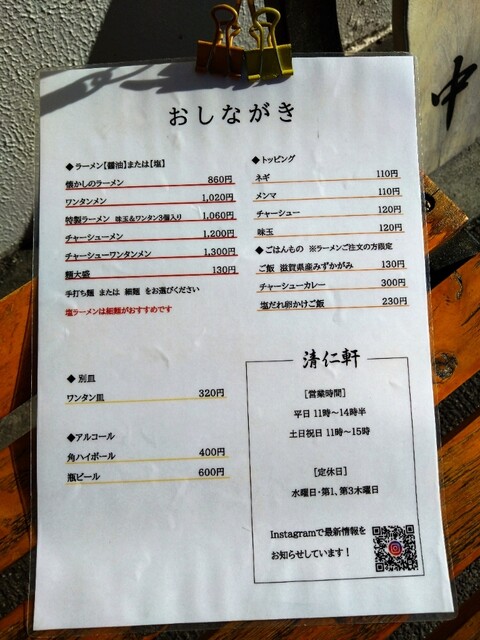 おしながき
◆ラーメン【醤油】または【塩】
懐かしのラーメン 860円
ワンタンメン 1,020円
特製ラーメン 味玉&ワンタン3個入り 1,060円
チャーシューメン 1,200円
チャーシューワンタンメン 1,300円
麺大盛 130円
手打ち麺 または 細麺 をお選びください
塩ラーメンは細麺がおすすめです
◆別皿
ワンタン皿 320円
◆アルコール
角ハイボール 400円
瓶ビール 600円
◆トッピング
ネギ 110円
メンマ 110円
チャーシュー 120円
味玉 120円
◆ごはんもの ※ラーメンご注文の方限定
ご飯 滋賀県産みずかがみ 130円
チャーシューカレー 300円
塩だれ卵かけご飯 230円
清仁軒
[営業時間]
平日 11時～14時半
土日祝日 11時～15時
[定休日]
水曜日・第1、第3木曜日
Instagramで最新情報を
お知らせしています!
中